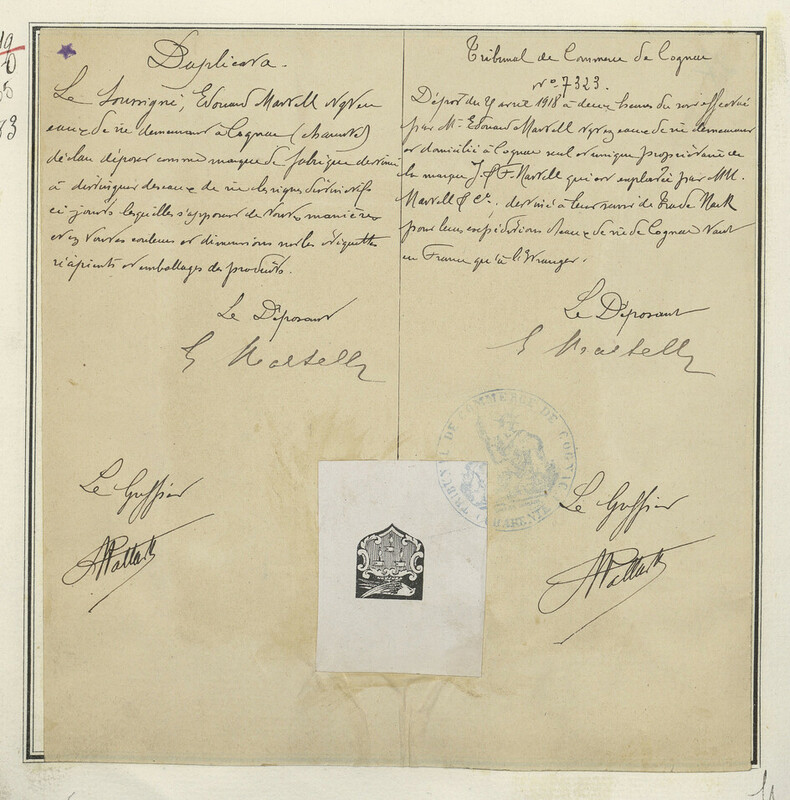 Duplicata.
Le Soussigné, Edouard Martell Négt en
eaux de vie demeurant à Cognac (charente)
déclare déposer comme marque de fabrique destinée
à distinguer des eaux de vie les signes distinctifs
ci joints lesquelles s'apposent de toutes manières
et en toutes couleurs et dimensions sur les étiquettes
récipients et emballages des produits.
Le Déposant
E Martell
Le Greffier
Tribunal de Commerce de Cognac
No 7323.
Dépôt du 29 avril 1918 à deux heures du soir effectué
par Mr Edouard Martell Négt en eaux de vie demeurant
et domicilié à Cognac seul et unique propriétaire de
la marque J. & F. Martell qui est exploitée par MM.
Martell & Cie, destiné à leur servir de Trade Mark
pour leurs expéditions d'eaux de vie de Cognac tant
en France qu'à l'Etranger.
Le Déposant
E Martell
TRIBUNAL DE COMMERCE DE COGNAC
CHARENTE
Le Greffier